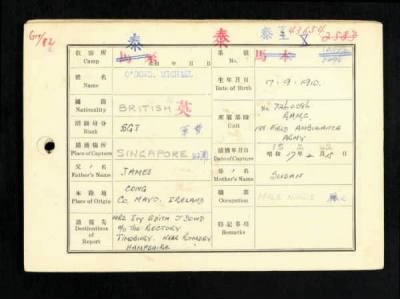 泰 泰 泰王 X 43654 2583
Gen/82
收容所
Camp
馬來
番號
No.
馬來
姓名
Name
O'DOWD, MICHAEL
生年月日
Date of Birth
17-9-1910.
國籍
Nationality
BRITISH 英
所屬部隊
Unit
R.A.M.C.
198 FIELD AMBULANCE
ARMY
階級身分
Rank
SGT
捕獲場所
Place of Capture
SINGAPORE
捕獲年月日
Date of Capture
昭和 17年 2月 15日
父ノ名
Father's Name
JAMES
母ノ名
Mother's Name
SUSAN
本籍地
Place of Origin
CONG
CO. MAYO, IRELAND
職業
Occupation
MALE NURSE
通報先
Destination of Report
MRS IVY EDITH O'DOWD
C/O THE RECTORY
TIMSBURY, NEAR ROMSEY
HAMPSHIRE
特記事項
Remarks